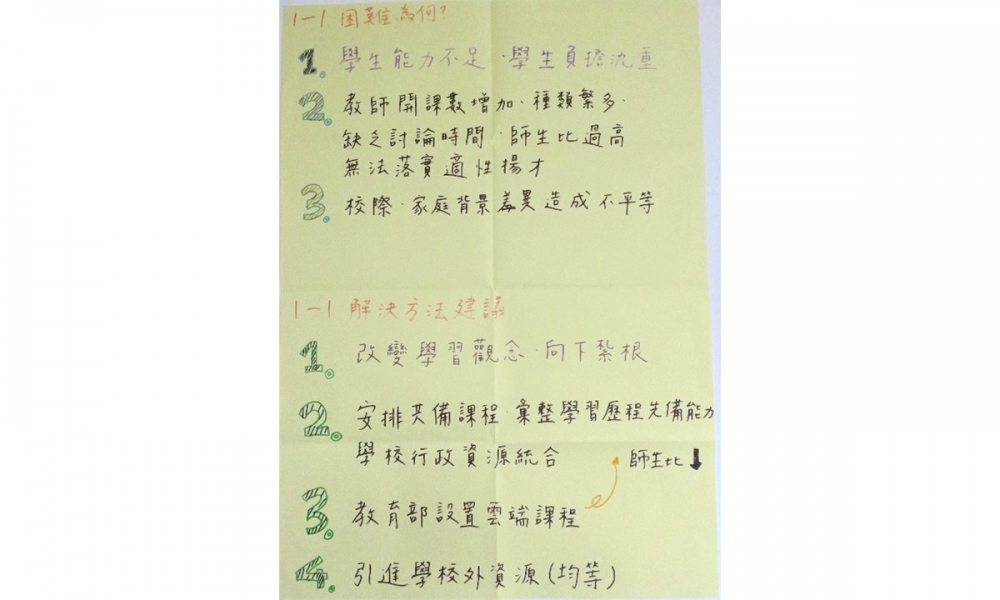 1-1 困難為何?
1. 學生能力不足、學生負擔沈重
2. 教師開課數增加、種類繁多、
缺乏討論時間、師生比過高
無法落實適性揚才
3. 校際、家庭背景差異造成不平等
1-1 解決方法建議
1. 改變學習觀念、向下紮根
2. 安排共備課程、彙整學習歷程先備能力
學校行政資源統合
師生比↓
3. 教育部設置雲端課程
4. 引進學校外資源(均等)